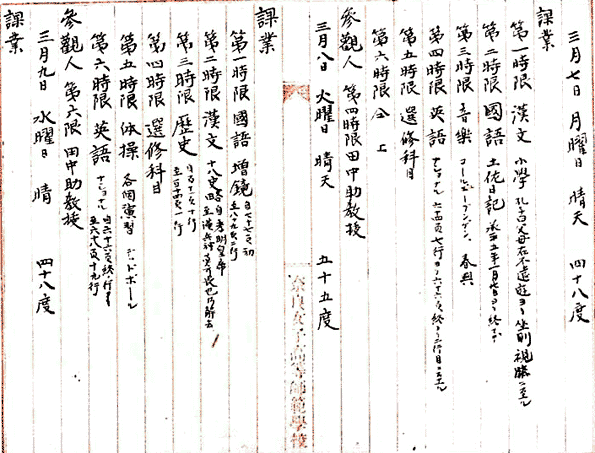 三月七日 月曜日 晴天 四十八度
課業
第一時限 漢文 小學 孔子曰父母在不遠遊ヨリ坐則視膝ニ至ル
第二時限 國語 土佐日記 承平五年一月
第三時限 音樂 春興
第四時限 英語 六十四頁七行ヨリ六十六頁終ヨリ二行目ニ至ル
第五時限 選修科目
第六時限 仝上
參觀人 第四時限田中助教授
三月八日 火曜日 晴天 五十五度
奈良女子高等師範學校
課業
第一時限 國語 增鏡 自七十七頁初 至八十九頁二行
第二時限 漢文 十八史略 自孝明皇帝
第三時限 歷史 至百十四頁一行
第四時限 選修科目
第五時限 体操 各個演習 デッドボール
第六時限 英語 ナショナル 自六十六頁終一行ヨリ 至六十八頁十九行
參觀人 第六限 田中助教授
三月九日 水曜日 晴 四十八度
課業